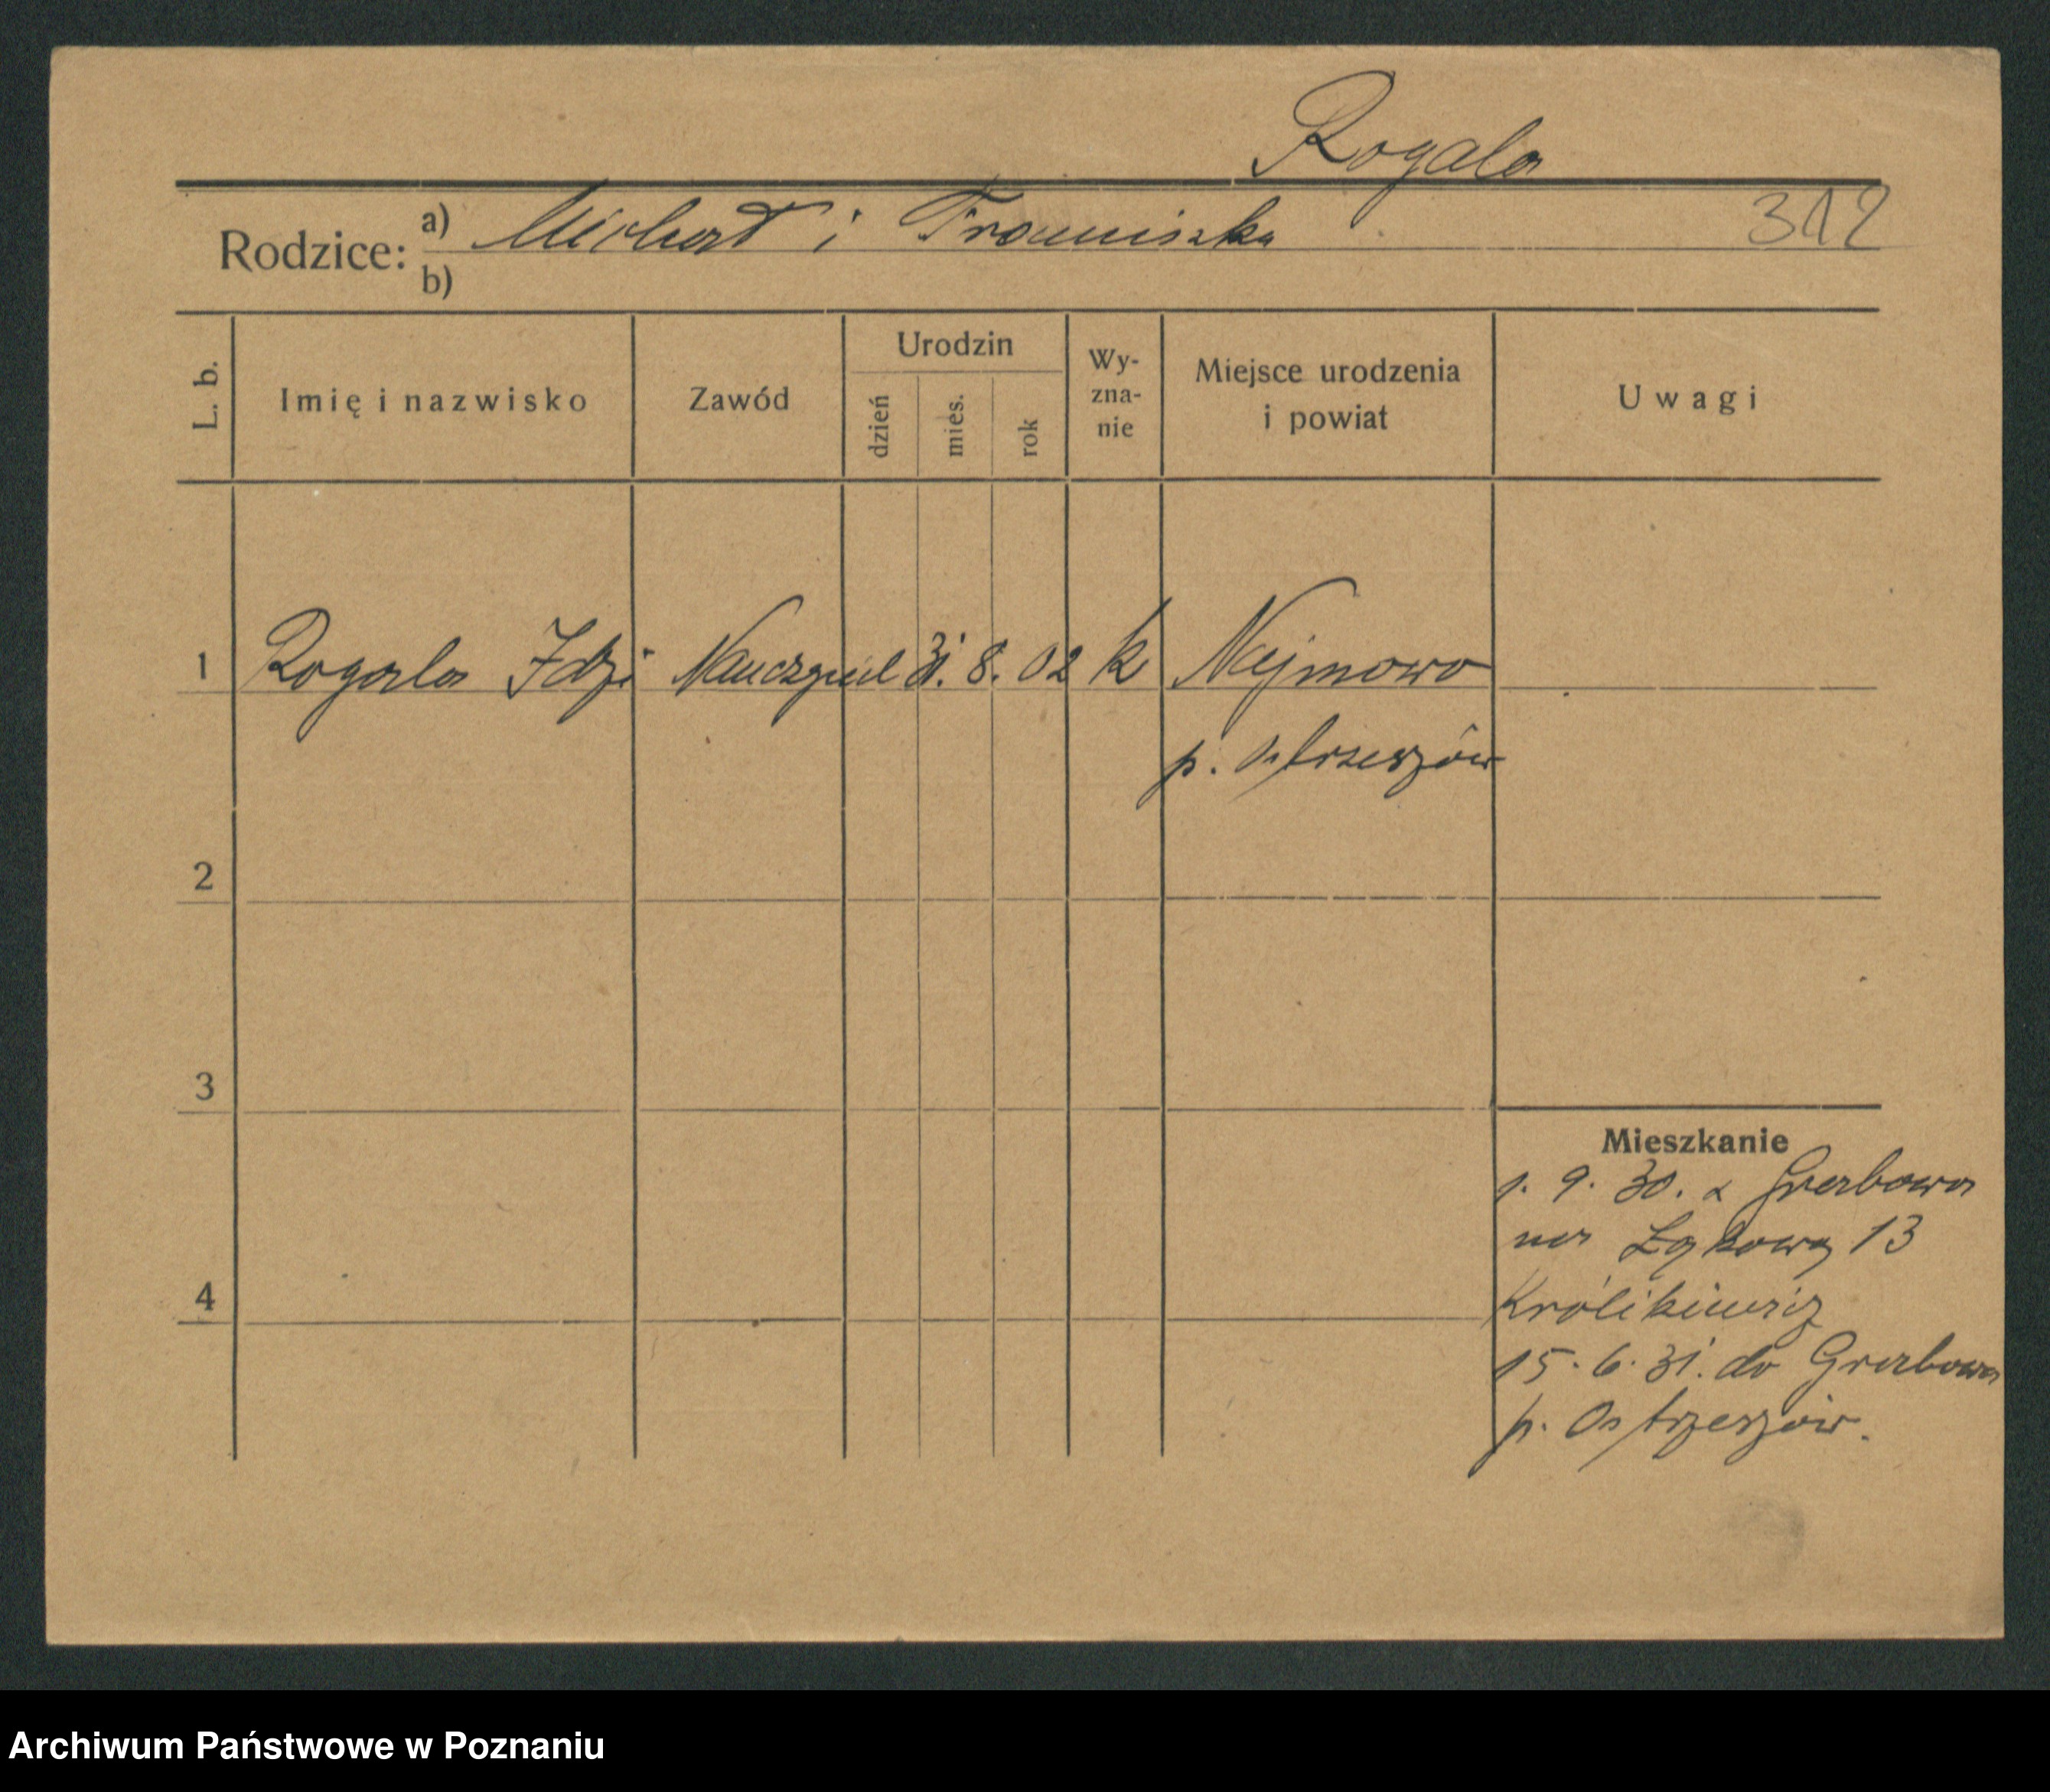 Rogala
Rodzice: a) Michał i Franciszka 312
b)
L. b.
Imię i nazwisko
Zawód
Urodzin
dzień
mies.
rok
Wy-
zna-
nie
Miejsce urodzenia
i powiat
Uwagi
1 Rogala Idzi Nauczyciel 31. 8. 02 k Najmowo
p. Ostrzeszów
2
3
4
Mieszkanie
1. 9. 30. z Grabowa
na Łąkową 13
Królikiewicz
15. 6. 31. do Grabowa
p. Ostrzeszów.
Archiwum Państwowe w Poznaniu